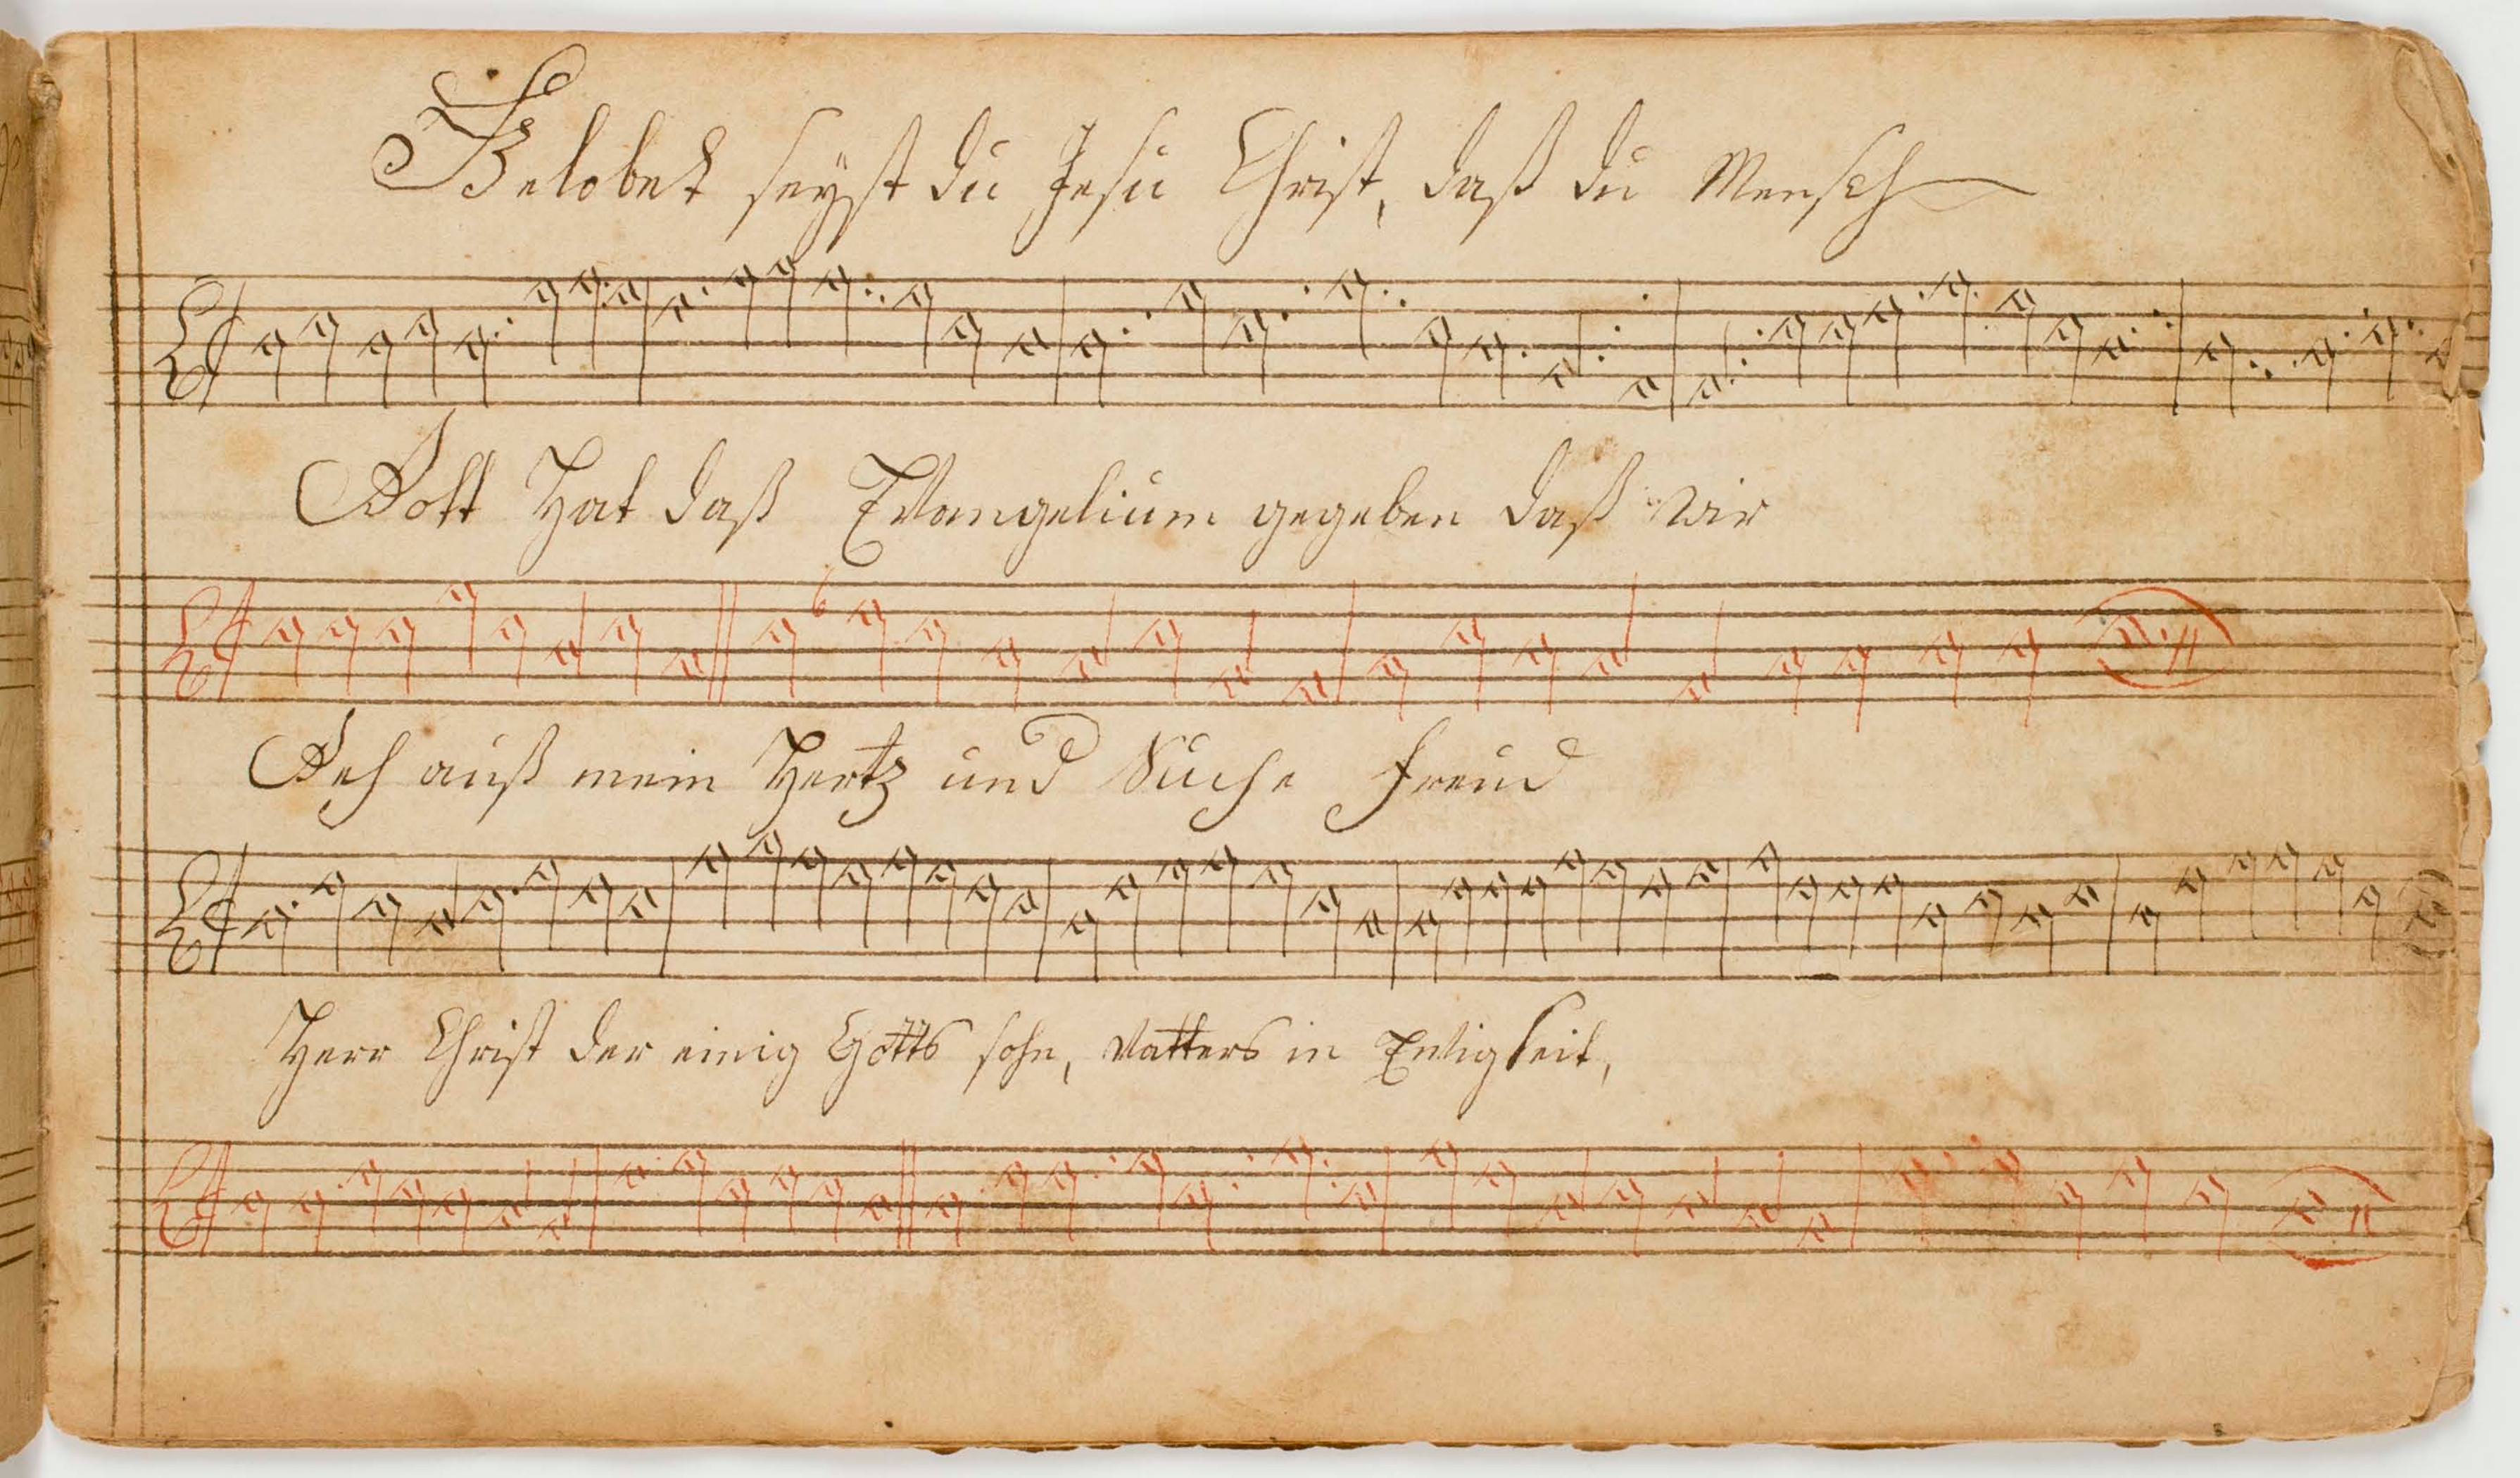 Belobet seyst du Jesu Christ, daß du Mensch
Gott Hat daß Evangelium gegeben daß wir
6
Geh auß mein Hertz und Suche freud
Herr Christ der einig Gotts sohn, Vatters in Ewigkeit,